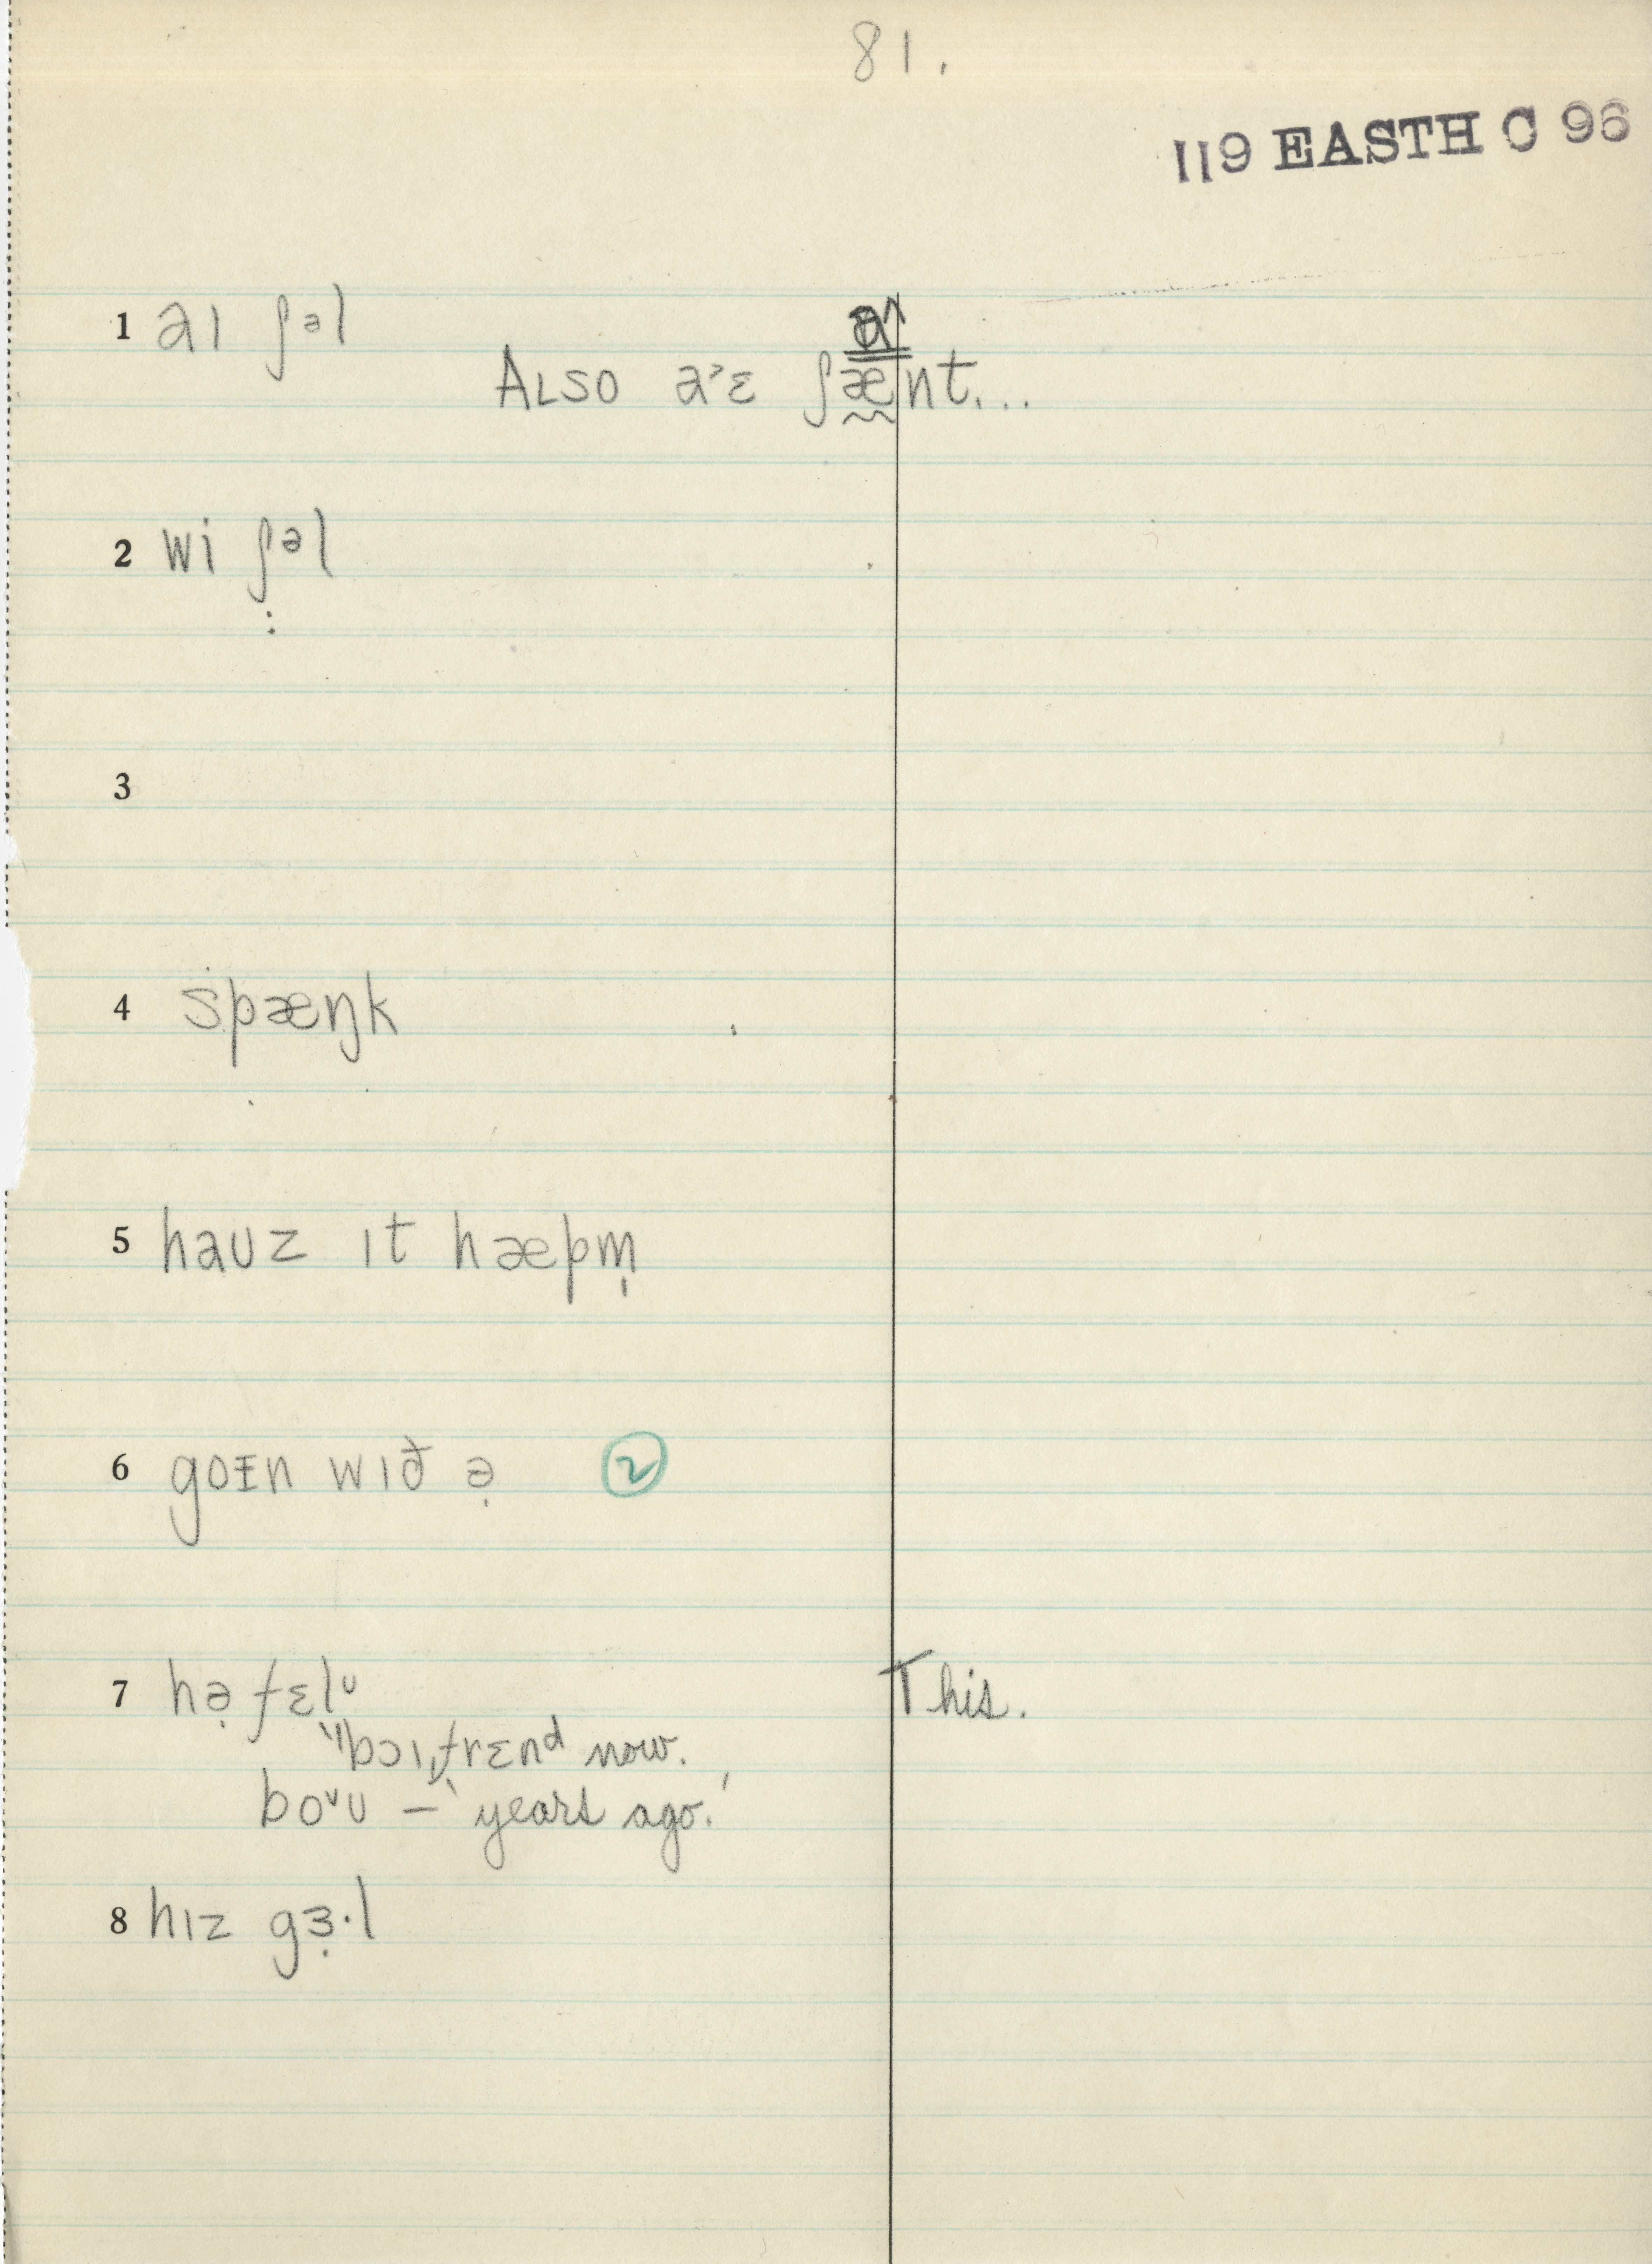 81.
119 EASTH C 96
1 aɪ ʃəl
a^
ALSO a˃ɛ ʃænt...
2 wi ʃəl
:
3
4 spæŋk
5 haʊz ɪt hæpm̩
6 goɪ̵n wɪð ə̣ 2
7 hə̣ fɛlᶷ This.
"bɔɪˌfrɛnᵈ now.
boᵛʊ – 'years ago.'
8 hɪz gɜ̣·l